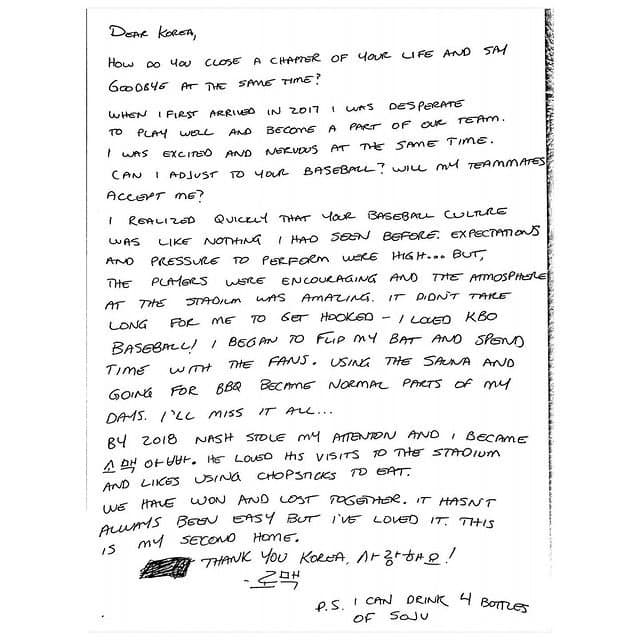 DEAR KOREA,
HOW DO YOU CLOSE A CHAPTER OF YOUR LIFE AND SAY
GOODBYE AT THE SAME TIME?
WHEN I FIRST ARRIVED IN 2017 I WAS DESPERATE
TO PLAY WELL AND BECOME A PART OF OUR TEAM.
I WAS EXCITED AND NERVOUS AT THE SAME TIME.
CAN I ADJUST TO YOUR BASEBALL? WILL MY TEAMMATES
ACCEPT ME?
I REALIZED QUICKLY THAT YOUR BASEBALL CULTURE
WAS LIKE NOTHING I HAD SEEN BEFORE. EXPECTATIONS
AND PRESSURE TO PERFORM WERE HIGH... BUT,
THE PLAYERS WERE ENCOURAGING AND THE ATMOSPHERE
AT THE STADIUM WAS AMAZING. IT DIDN'T TAKE
LONG FOR ME TO GET HOOKED - I LOVED KBO
BASEBALL! I BEGAN TO FLIP MY BAT AND SPEND
TIME WITH THE FANS. USING THE SAUNA AND
GOING FOR BBQ BECAME NORMAL PARTS OF MY
DAYS. I'LL MISS IT ALL...
BY 2018 NASH STOLE MY ATTENTION AND I BECAME
소맥 아빠. HE LOVED HIS VISITS TO THE STADIUM
AND LIKES USING CHOPSTICKS TO EAT.
WE HAVE WON AND LOST TOGETHER. IT HASN'T
ALWAYS BEEN EASY BUT I'VE LOVED IT. THIS
IS MY SECOND HOME.
THANK YOU KOREA, 사랑해요!
- 로맥
P.S. I CAN DRINK 4 BOTTLES
OF SOJU